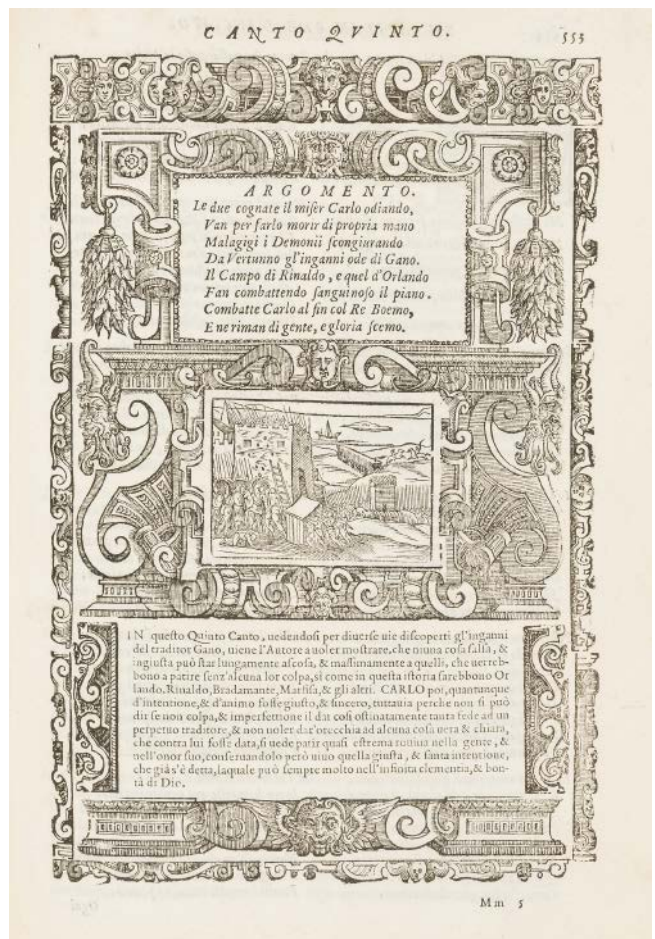 CANTO QVINTO.
553
ARGOMENTO.
Le due cognate il miser Carlo odiando,
Van per farlo morir di propria mano
Malagigi i Demonii scongiurando
Da Vertunno gl'inganni ode di Gano.
Il Campo di Rinaldo, e quel d'Orlando
Fan combattendo sanguinoso il piano.
Combatte Carlo al fin col Re Boemo,
E ne riman di gente, e gloria scemo.
IN questo Quinto Canto, uedendosi per diuerse uie discoperti gl'inganni
del traditor Gano, uiene l'Autore a uoler mostrare, che niuna cosa falsa, &
ingiusta può star lungamente ascosa, & massimamente a quelli, che uerreb-
bono a patire senz'alcuna lor colpa, si come in questa istoria sarebbono Or
lando, Rinaldo, Bradamante, Marfisa, & gli altri. CARLO poi, quantunque
d'intentione, & d'animo fosse giusto, & sincero, tuttauia perche non si può
dir se non colpa, & imperfettione il dar cosi ostinatamente tanta fede ad un
perpetuo traditore, & non uoler dar'orecchia ad alcuna cosa uera & chiara,
che contra lui fosse data, si uede patir quasi estrema rouina nella gente, &
nell'onor suo, conseruandolo però uiuo quella giusta, & santa intentione,
che già s'è detta, laquale può sempre molto nell'infinita clementia, & bon-
tà di Dio.
Mm 5